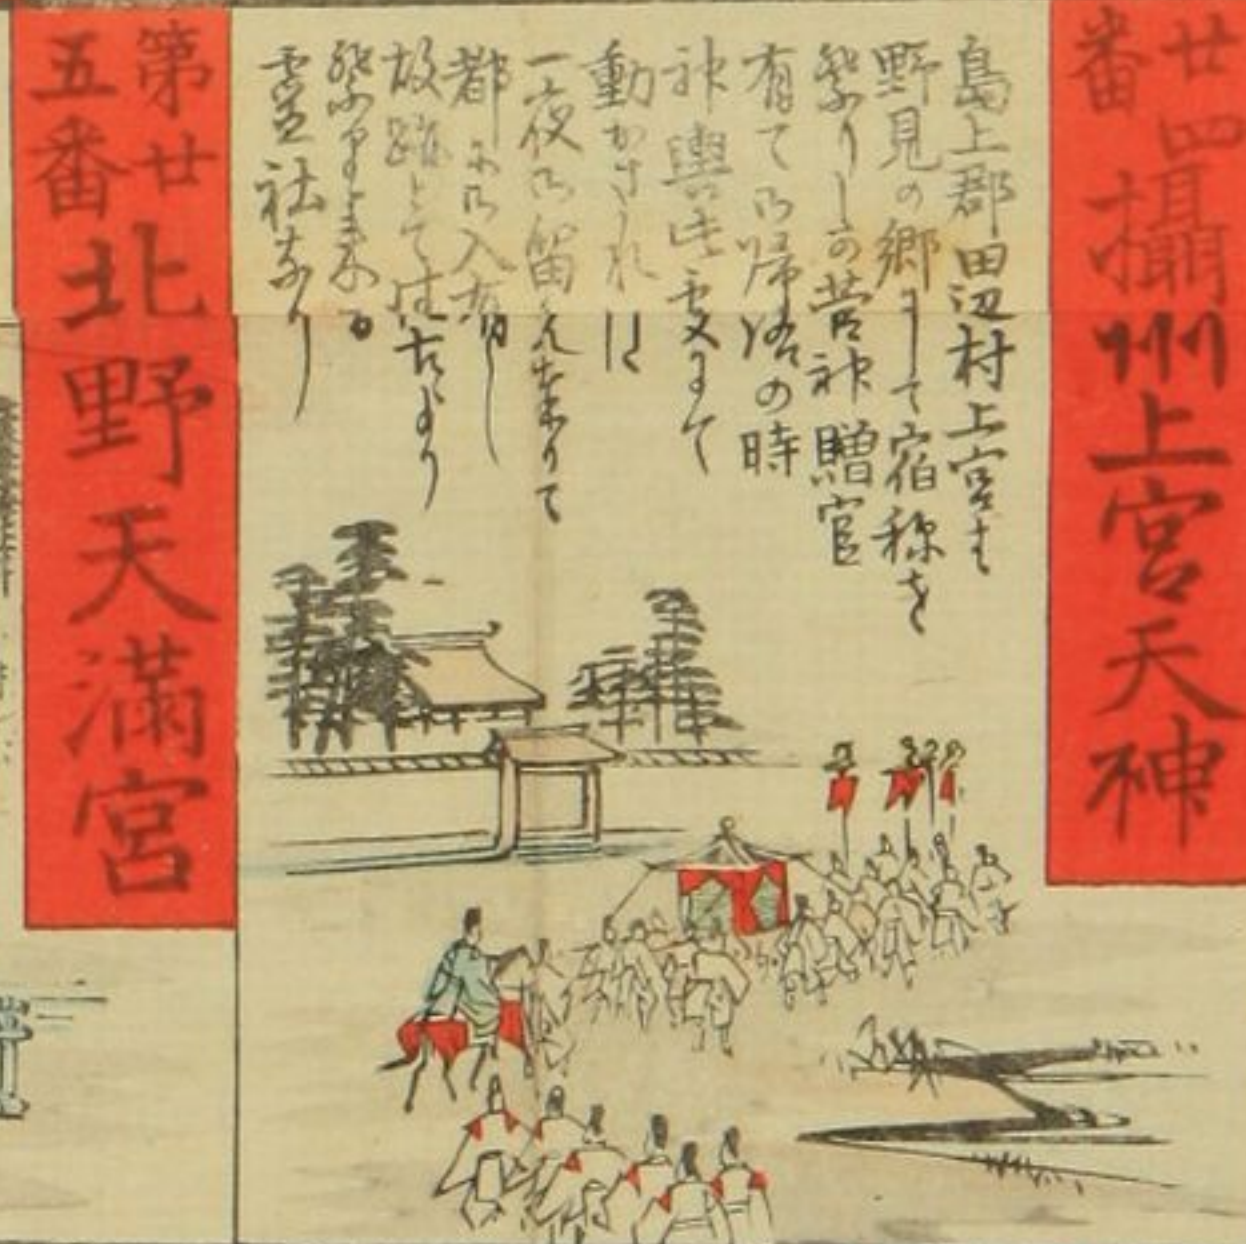 廿四番
攝州上宮天神
島上郡田辺村上宮は
野見の郷にして宿祢を
祭りしか菅神贈官
有て御帰洛の時
神輿此処にて
動かされは
一夜御留を奉りて
都に御入有し
故跡とて往古より
祭り来る
霊社なり
第廿五番
北野天満宮